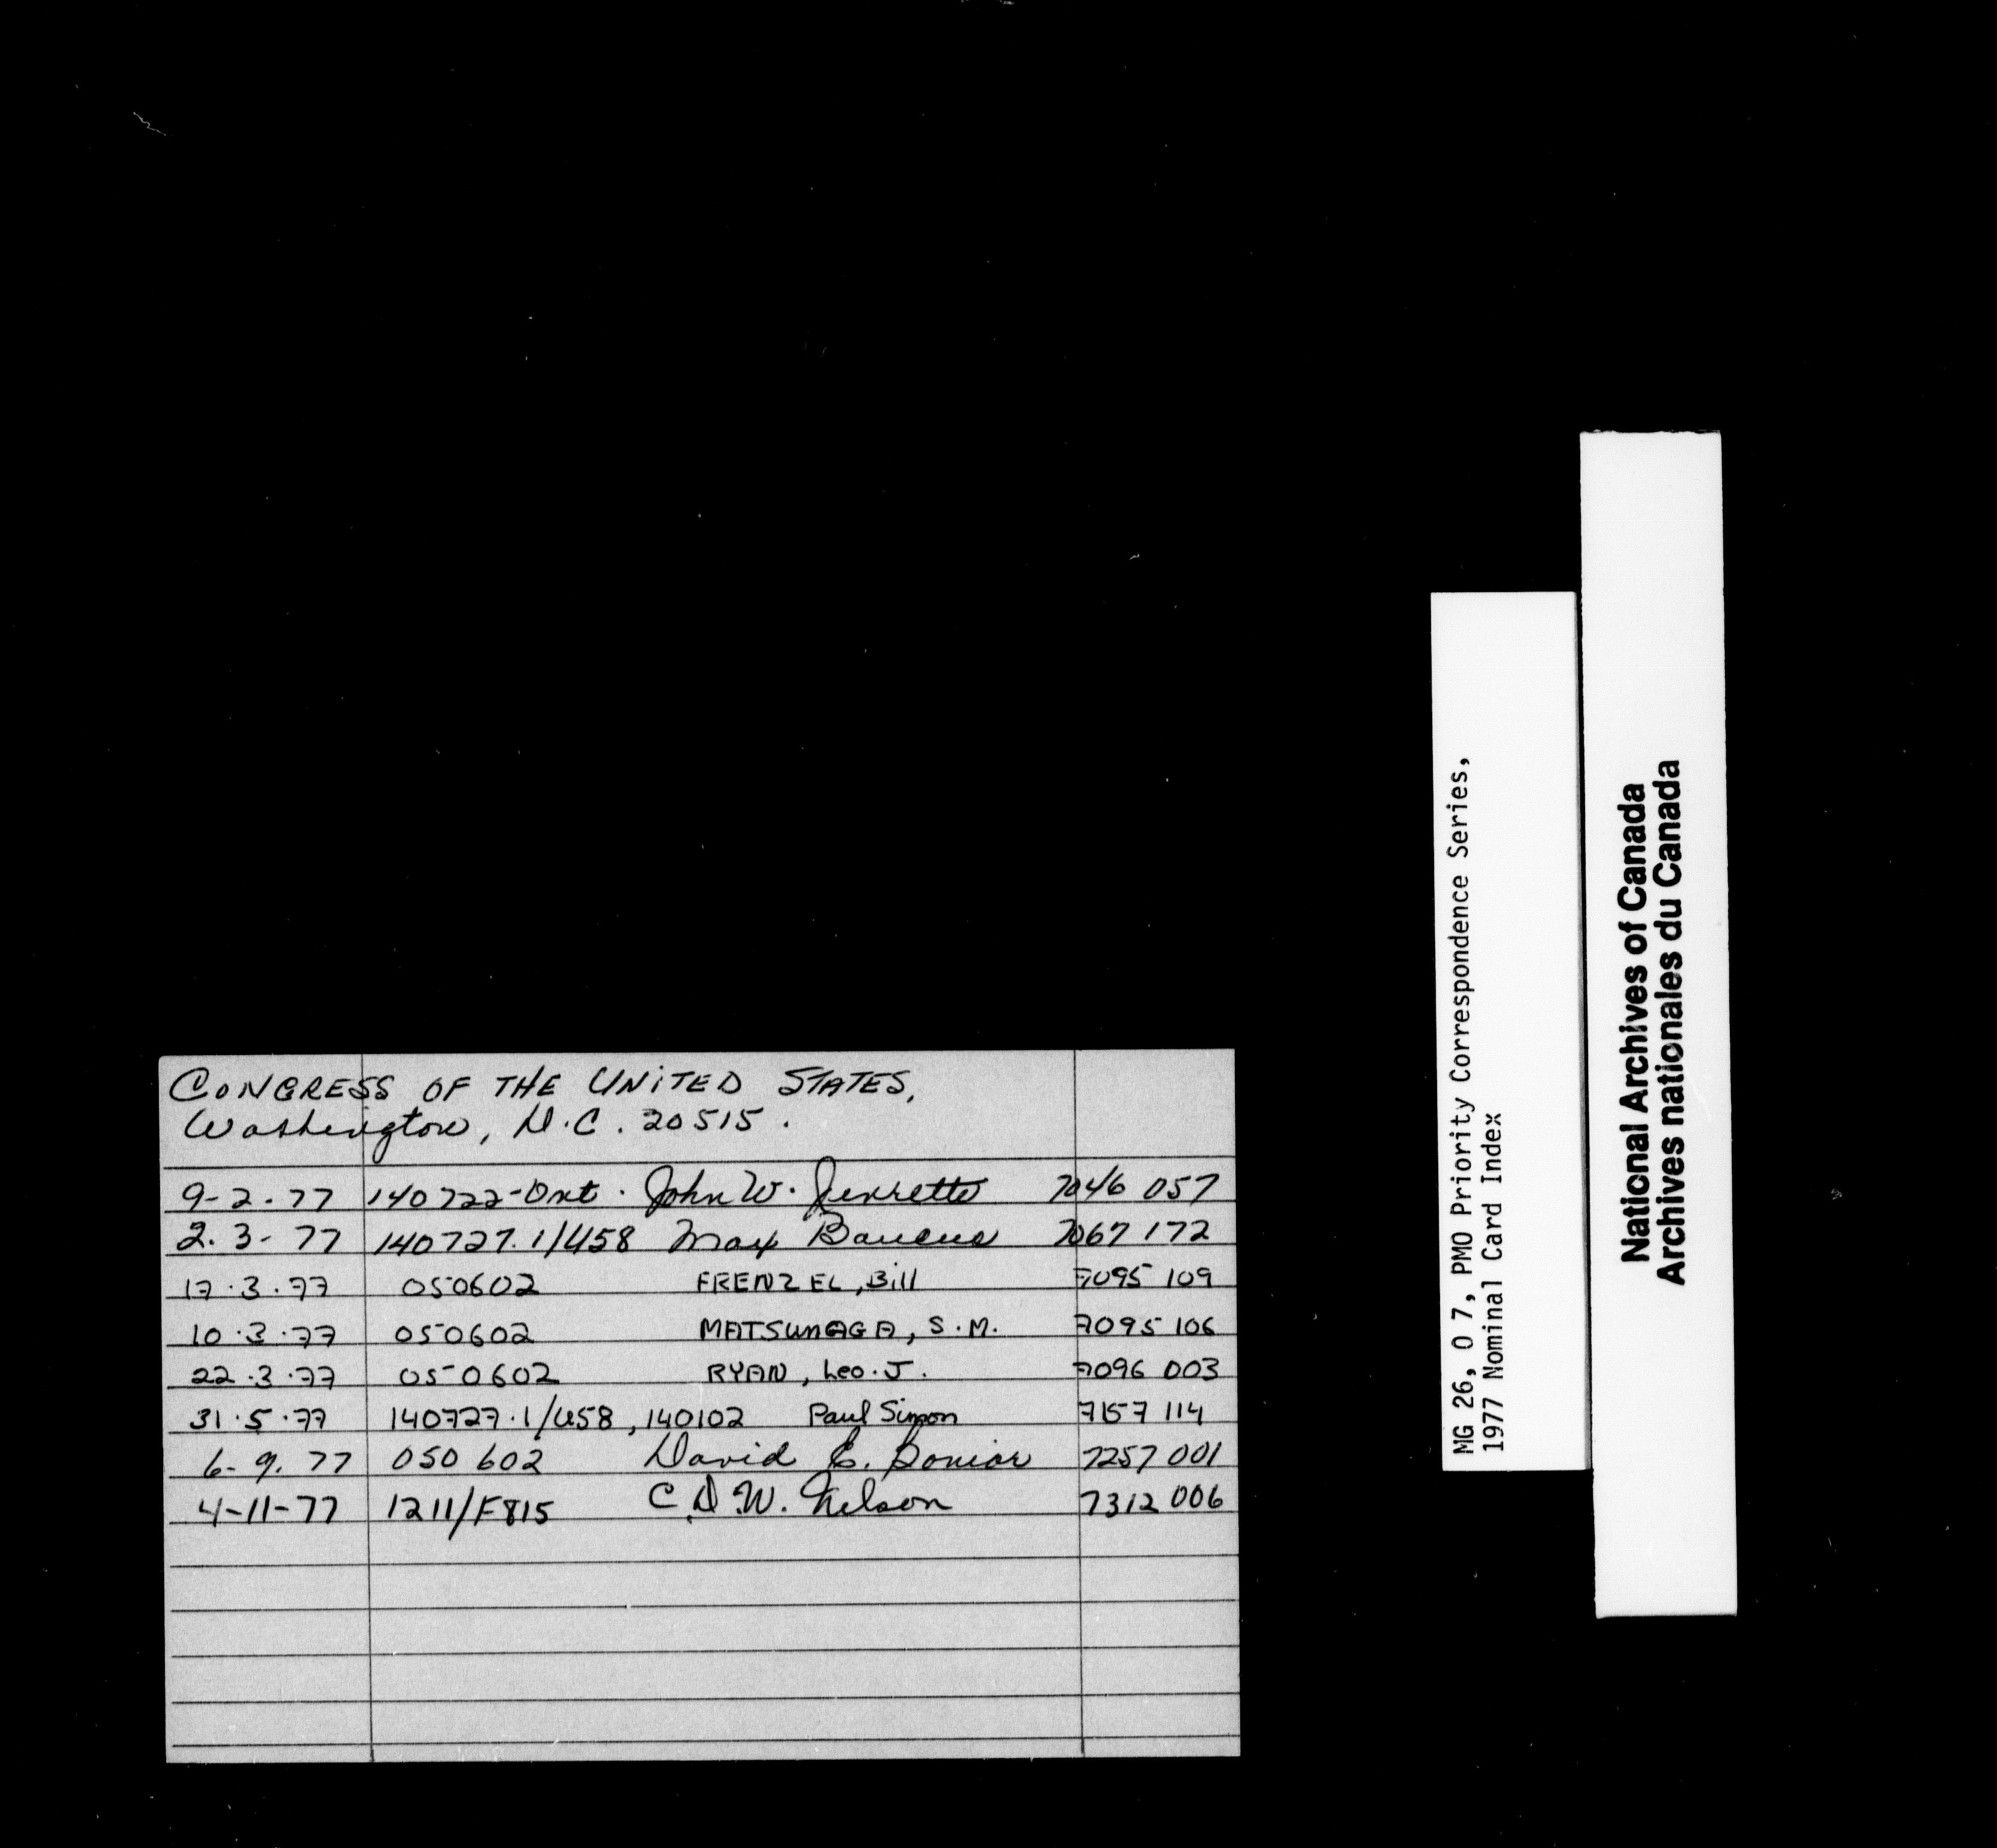 CONGRESS OF THE UNITED STATES,
Washington, D.C. 20515.
9-2-77 140722-Ont. John W. Jenrette 7046 057
2.3-77 140727.1/U58 Max Baucus 7067 172
17.3.77 050602 FRENZEL, Bill 7095 109
10.3.77 050602 MATSUNAGA, S.M. 7095 106
22.3.77 050602 RYAN, Leo.J. 7096 003
31.5.77 140727.1/U58, 140102 Paul Simon 7157 114
6-9.77 050 602 David E. Bonior 7257 001
4-11-77 1211/F815 C.D.W. Nelson 7312 006
MG 26, O 7, PMO Priority Correspondence Series,
1977 Nominal Card Index
National Archives of Canada
Archives nationales du Canada